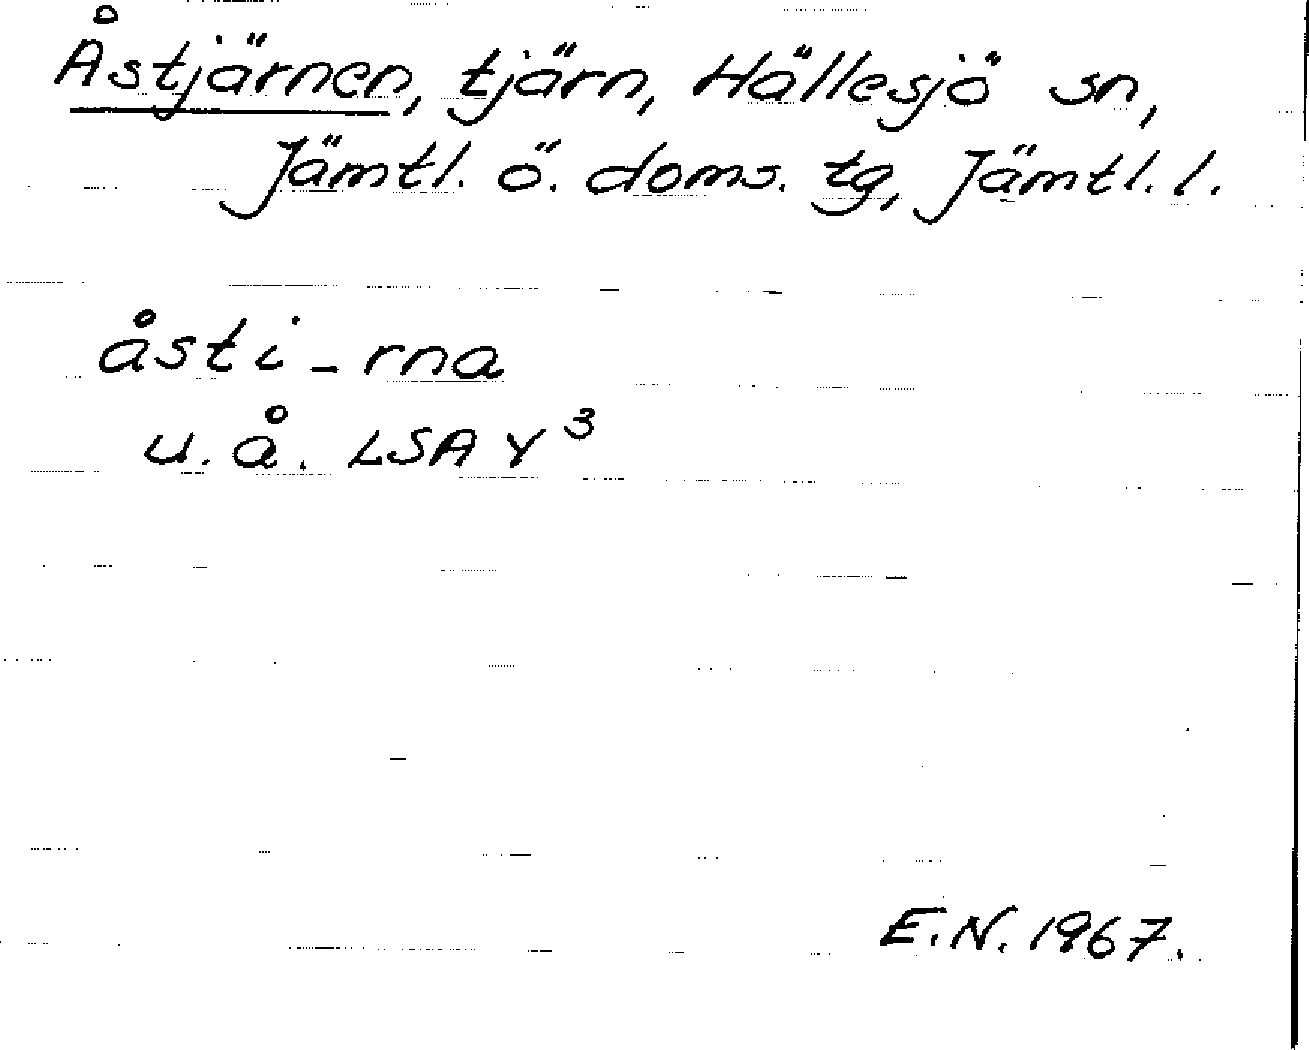 Åstjärnen, tjärn, Hällesjö sn,
Jämtl. ö. doms. tg, Jämtl. l.
åsti-rna
u. å. LSA Y 3
E.N. 1967.